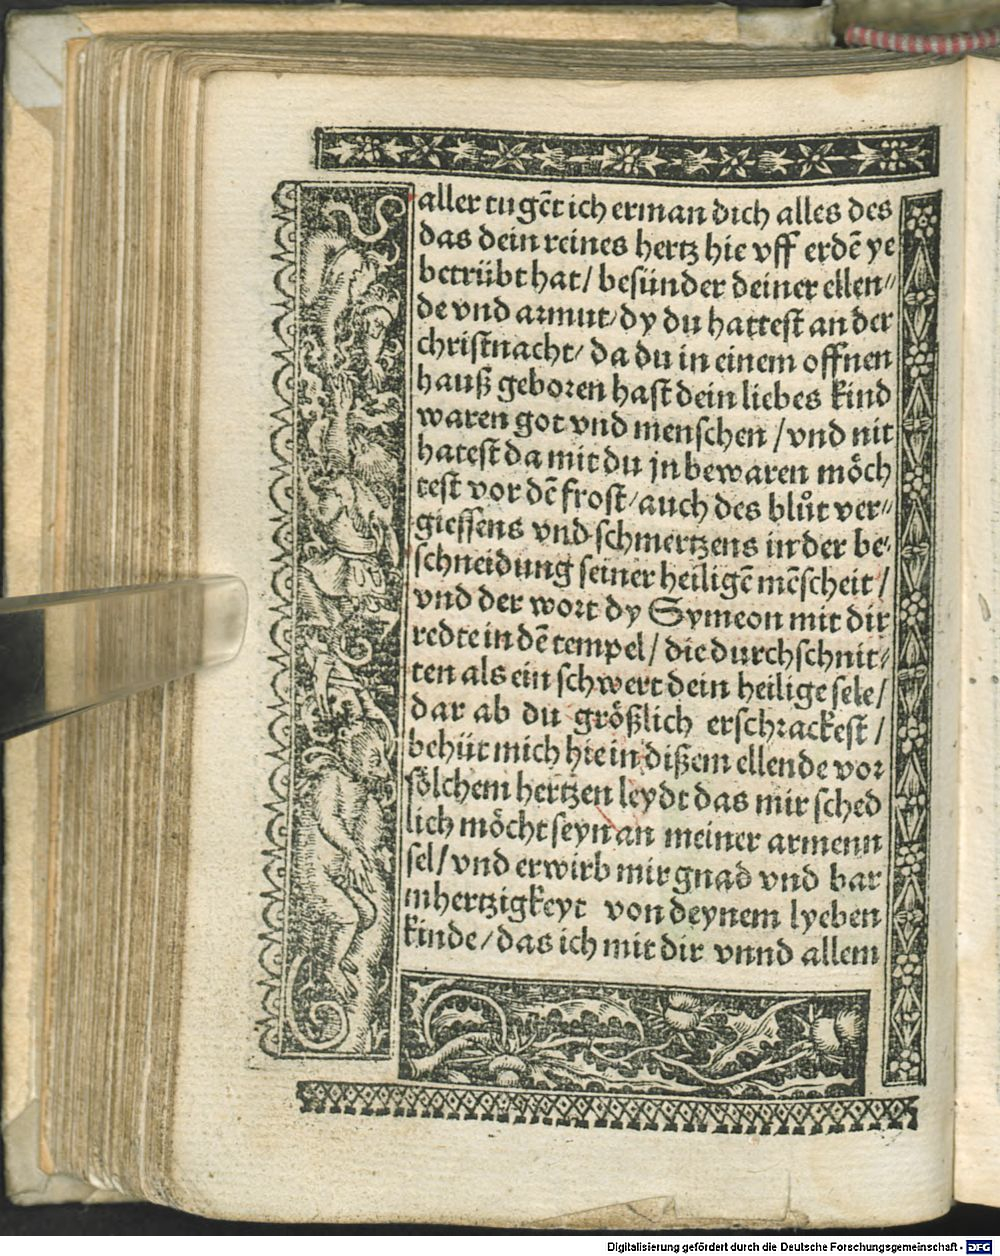 aller tugēt ich erman dich alles des
das dein reines hertz hie vff erdē ye
betrübt hat/ besünder deiner ellen⸗
de vnd armut/ dy du hattest an der
christnacht/ da du in einem offnen
hauß geboren hast dein liebes kind
waren got vnd menschen /vnd nit
hatest da mit du jn bewaren möch
test vor dē frost/ auch des blůt ver⸗
giessens vnd schmertzens in der be⸗
schneidung seiner heiligē mēscheit/
vnd der wort dy Symeon mit dir
redte in dē tempel/ die durchschnit⸗
ten als ein schwert dein heilige sele/
dar ab du größlich erschrackest/
behüt mich hie in dißem ellende vor
sölchem hertzen leydt das mir sched
lich möcht seyn an meiner armenn
sel/ vnd erwirb mir gnad vnd bar
mhertzigkeyt von deynem lyeben
kinde/ das ich mit dir vnnd allem
Digitalisierung gefördert durch die Deutsche Forschungsgemeinschaft - DFG